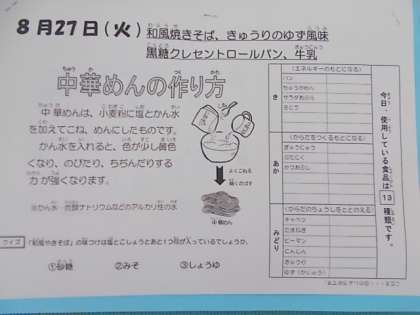 8月27日(火)
和風焼きそば、きゅうりのゆず風味
黒糖クレセントロールパン、牛乳
中華めんの作り方
中華めんは、小麦粉に塩とかん水
を加えてこね、めんにしたものです。
かん水を入れると、色が少し黄色
くなり、のびたり、ちぢんだりする
力が強くなります。
※かん水…炭酸ナトリウムなどのアルカリ性の水
よくこねる
細くのばす
中華めん
クイズ
「和風やきそば」の味つけは塩とこしょうとあと1つ何が入っているでしょうか。
①砂糖 ②みそ ③しょうゆ
き
(エネルギーのもとになる)
パン
ちゅうかめん
サラダあぶら
さとう
あか
(からだをつくるもとになる)
ぎゅうにゅう
ぶたにく
かつおぶし
みどり
(からだのちょうしをととのえる)
キャベツ
たまねぎ
ピーマン
にんじん
きゅうり
ゆず(かじゅう)
今日、使用している食品は
13
種類です。